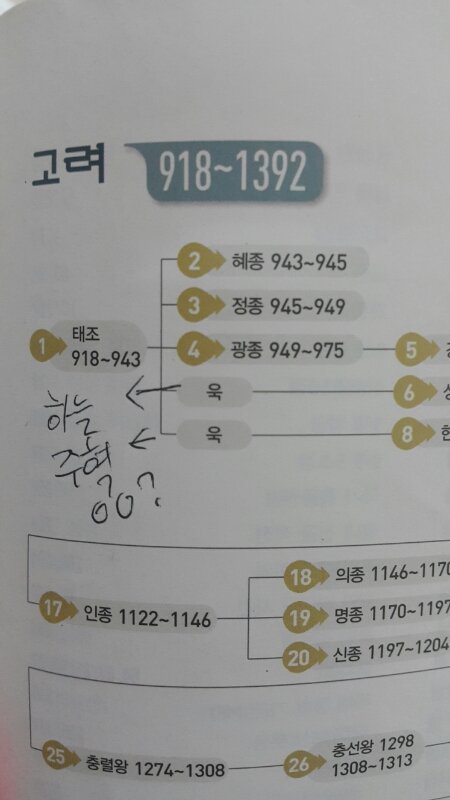 고려 918~1392
2 혜종 943~945
3 정종 945~949
1 태조
918~943
4 광종 949~975
5
욱
6
욱
8
하늘
주형
18 의종 1146~1170
17 인종 1122~1146
19 명종 1170~1197
20 신종 1197~1204
25 충렬왕 1274~1308
26 충선왕 1298
1308~1313